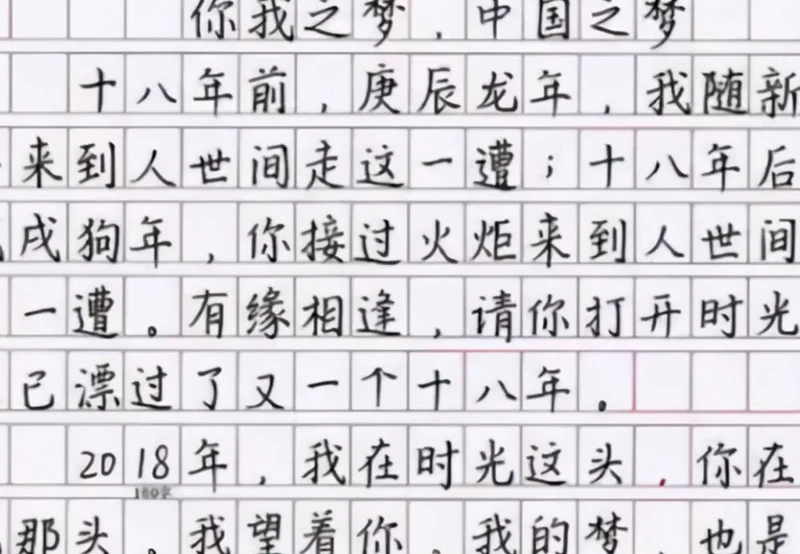 你我之梦，中国之梦
十八年前，庚辰龙年，我随新
来到人世间走这一遭；十八年后
戌狗年，你接过火炬来到人世间
一遭。有缘相逢，请你打开时光
已漂过了又一个十八年。
2018年，我在时光这头，你在
那头。我望着你。我的梦，也是